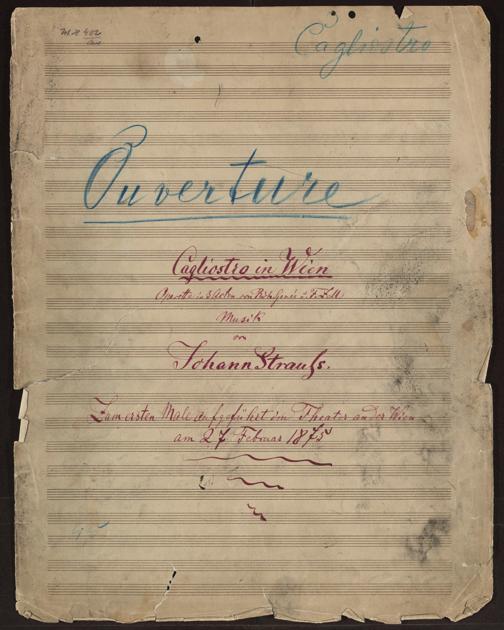 Cagliostro
Ouverture
Cagliostro in Wien
Operette in 3 Acten von Rich. Genée u. F. Zell
Musik
von
Johann Strauss.
Zum ersten Male aufgeführt im Theater an der Wien
am 27 Februar 1875